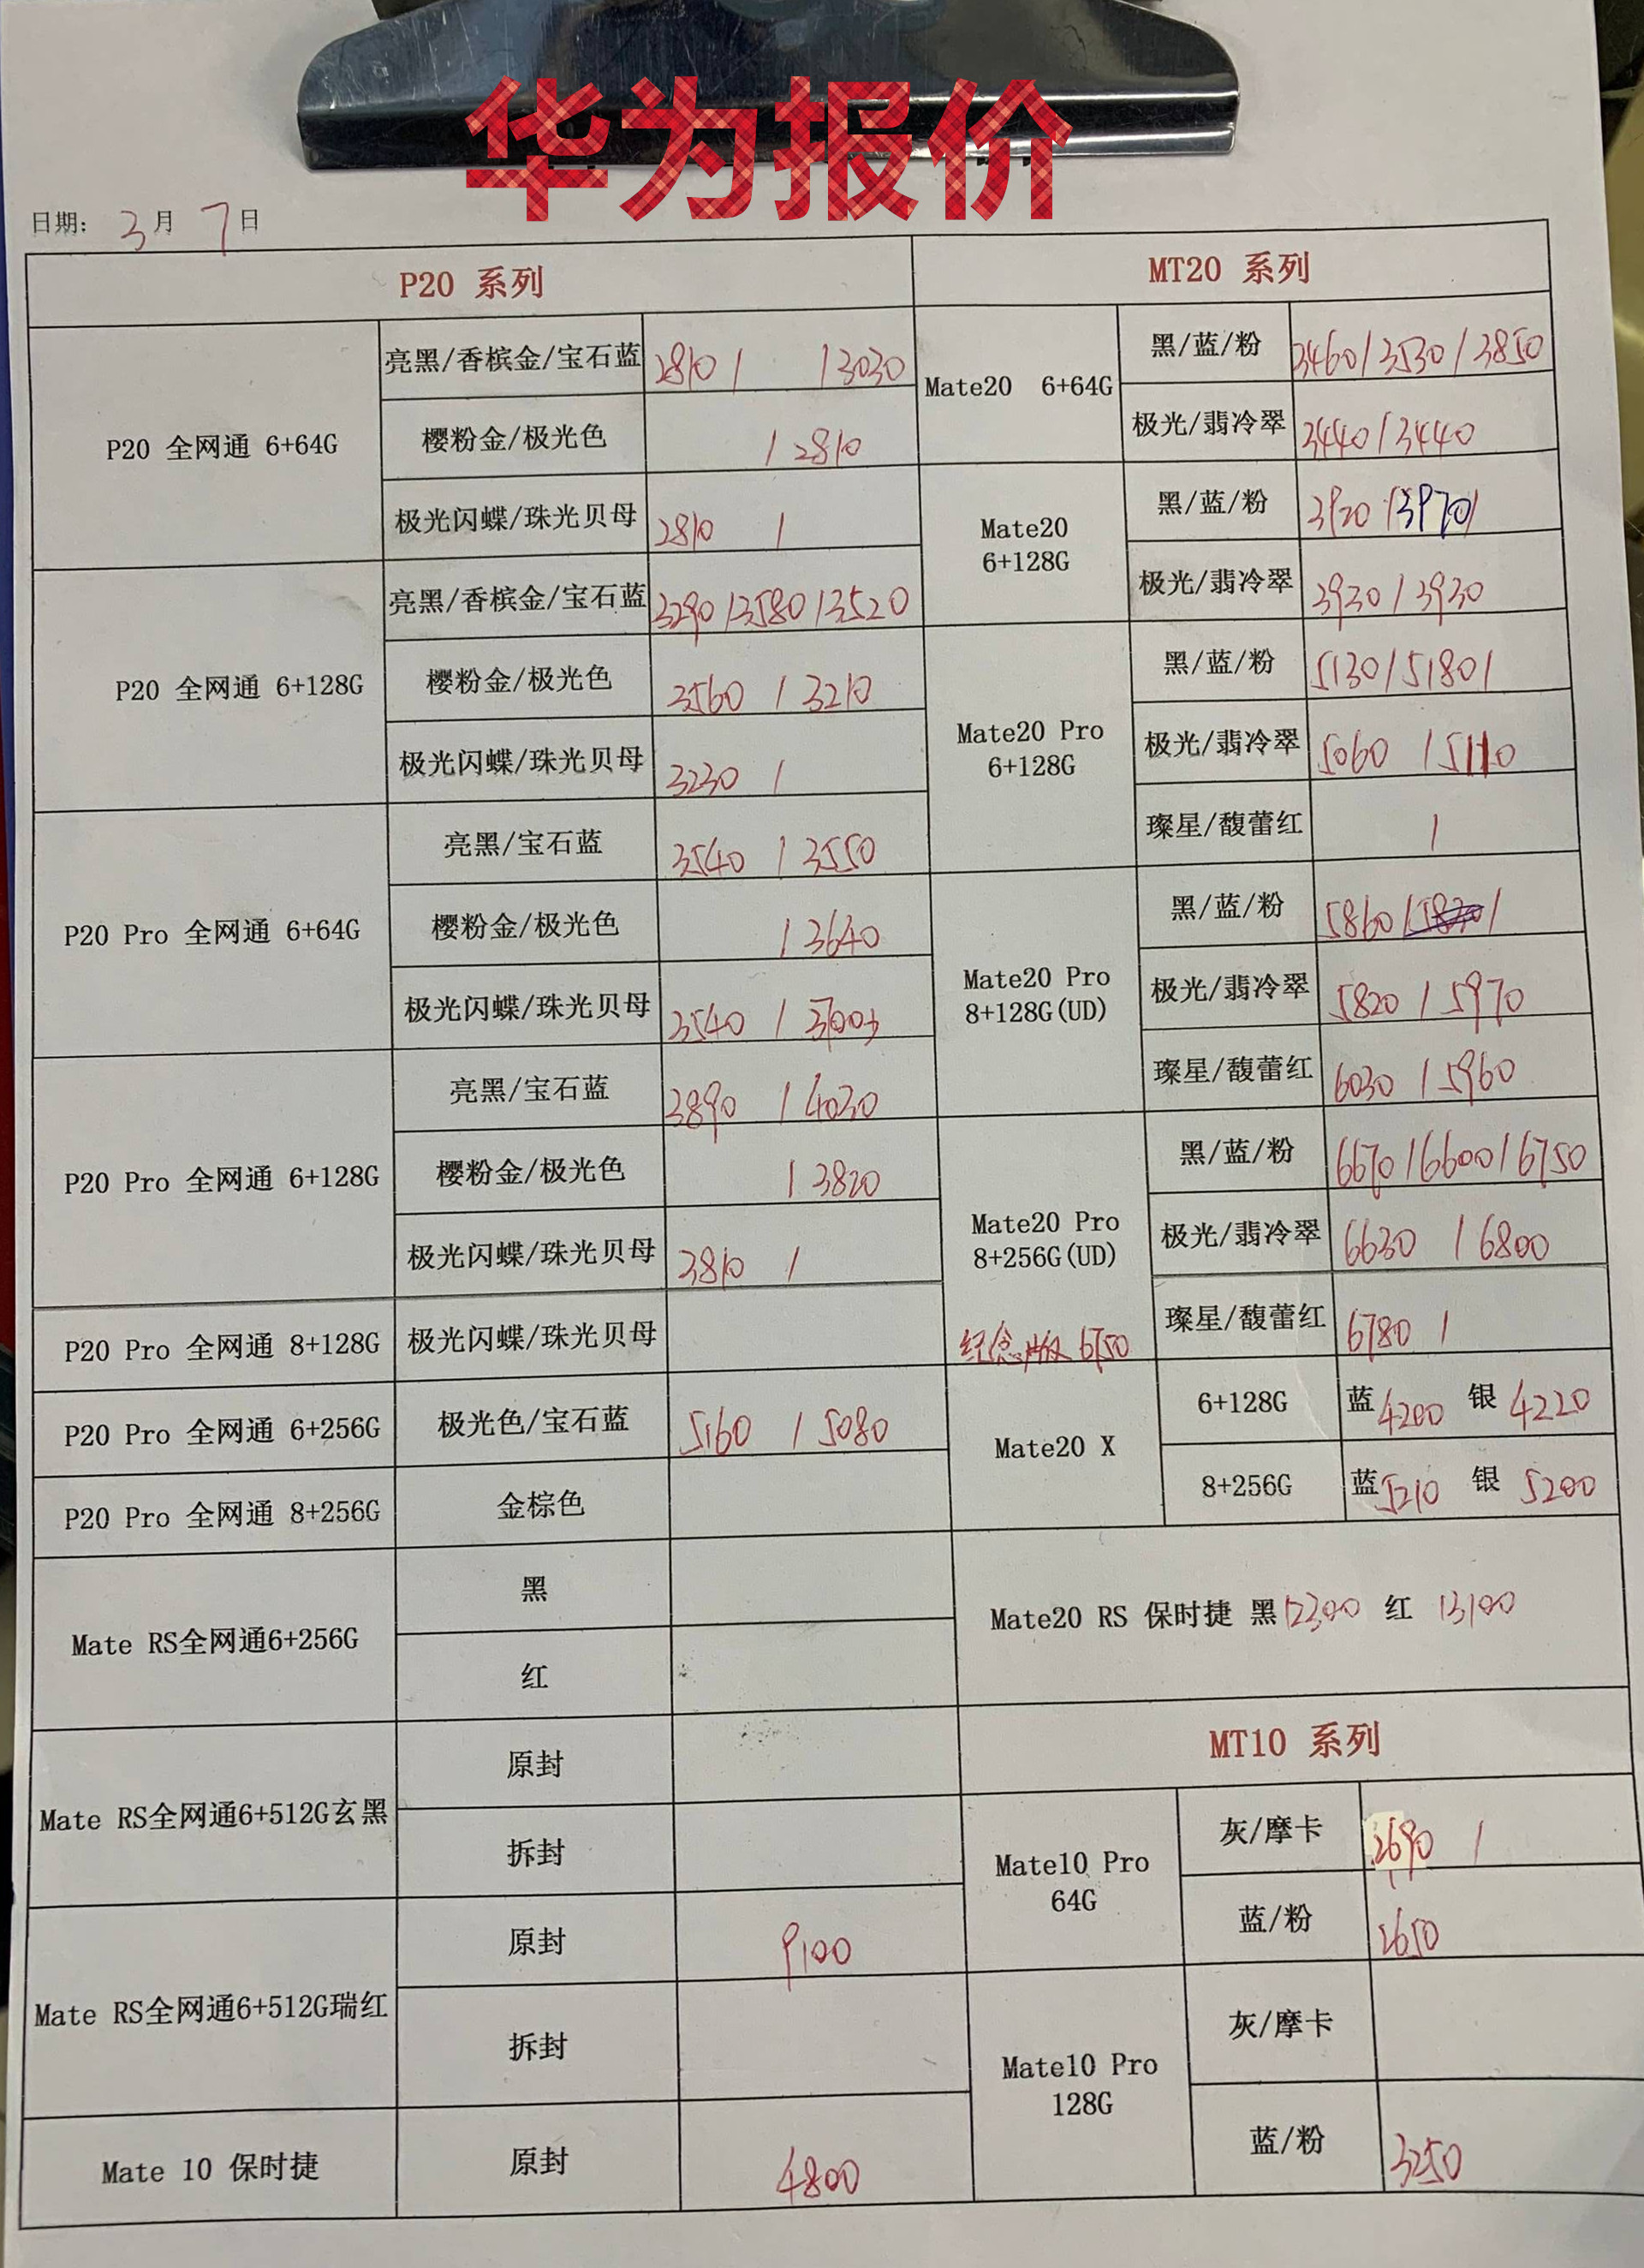 华为报价
日期: 3月 7日
P20 系列
P20 全网通 6+64G
亮黑/香槟金/宝石蓝 2810 / /3030
樱粉金/极光色 / 2810
极光闪蝶/珠光贝母 2810 /
P20 全网通 6+128G
亮黑/香槟金/宝石蓝 3290/3580/3520
樱粉金/极光色 3560 / 3210
极光闪蝶/珠光贝母 3230 /
P20 Pro 全网通 6+64G
亮黑/宝石蓝 3540 / 3550
樱粉金/极光色 / 3640
极光闪蝶/珠光贝母 3540 /
P20 Pro 全网通 6+128G
亮黑/宝石蓝 3890 / 4030
樱粉金/极光色 / 3820
极光闪蝶/珠光贝母 3810 /
P20 Pro 全网通 8+128G 极光闪蝶/珠光贝母
P20 Pro 全网通 6+256G 极光色/宝石蓝 5160 / 5080
P20 Pro 全网通 8+256G 金棕色
Mate RS全网通6+256G
黑
红
Mate RS全网通6+512G玄黑
原封
拆封
Mate RS全网通6+512G瑞红
原封 9100
拆封
Mate 10 保时捷 原封 4800
MT20 系列
Mate20 6+64G
黑/蓝/粉 3460/3530/3850
极光/翡冷翠 3440/3440
Mate20
6+128G
黑/蓝/粉 3920/3970/
极光/翡冷翠 3930/3930
Mate20 Pro
6+128G
黑/蓝/粉 5130/5180/
极光/翡冷翠 5060 /5110
璨星/馥蕾红 /
Mate20 Pro
8+128G(UD)
黑/蓝/粉 5860/ /
极光/翡冷翠 5820 / 5970
璨星/馥蕾红 6030 / 5960
Mate20 Pro
8+256G(UD)
纪念版 6750
黑/蓝/粉 6670/6600/6750
极光/翡冷翠 6630 / 6800
璨星/馥蕾红 6780 /
Mate20 X
6+128G 蓝4200 银4220
8+256G 蓝5210 银5200
Mate20 RS 保时捷 黑12300 红 13100
MT10 系列
Mate10 Pro
64G
灰/摩卡 2690 /
蓝/粉 2650
Mate10 Pro
128G
灰/摩卡
蓝/粉 3250